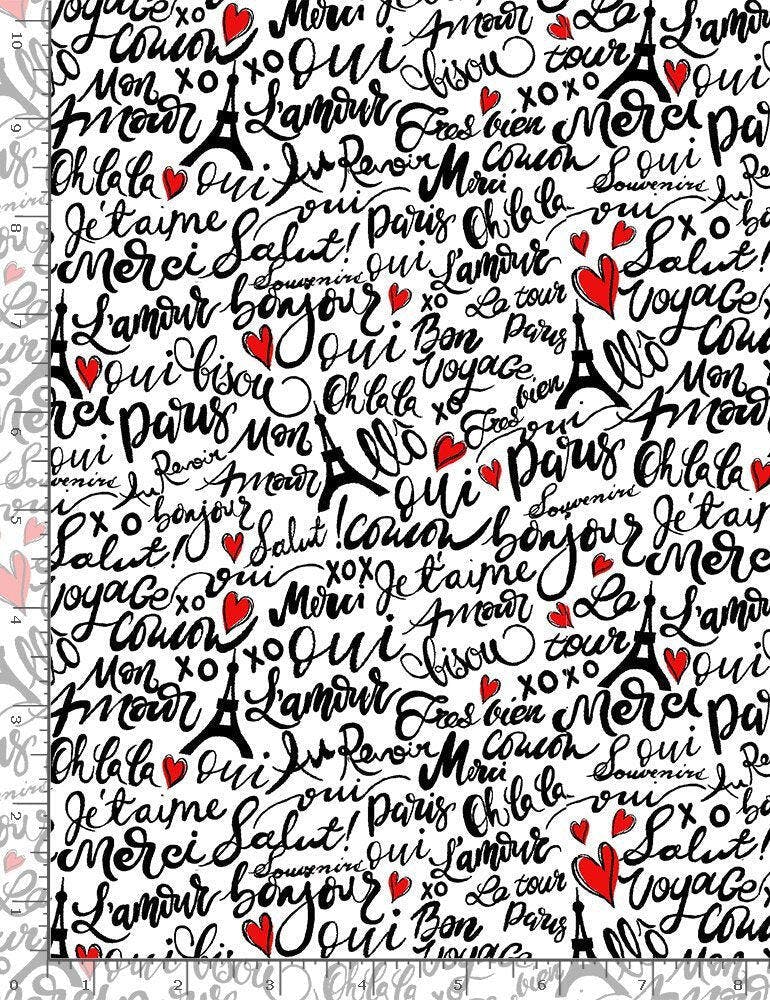 xo Merci Amour Le L'amour
Coucou xo oui bisou tour oui
Mon xo xoxo
Amour L'amour Tres bien Merci Paris
Oh la la oui Au Revoir Merci Coucou oui
Souvenirs Au
Je t'aime oui Paris Oh la la oui xo
Salut! Salut!
Merci Souvenirs oui L'amour
L'amour bonjour xo Le tour Voyage
oui Bon Paris Allô Coucou
oui bisou Voyage Mon
Oh la la xo Tres bien Amour
Paris Mon Allô oui
oui Au Revoir Amour oui Paris Oh la la
Souvenirs Souvenirs
xo bonjour Salut! Coucou bonjour Je t'aime
Salut! Merci
Voyage oui xox Je t'aime
xo Merci Amour Le L'amour
Coucou xo oui bisou tour oui
Mon xo xoxo
Amour L'amour Tres bien Merci
Oh la la oui Au Revoir Merci Coucou oui
Souvenirs
Je t'aime oui Paris Oh la la oui xo
Salut! Salut!
Merci Souvenirs oui L'amour
L'amour bonjour xo Le tour Voyage
oui Bon Paris Allô
Voyage
10
9
8
7
6
5
4
3
2
1
0 1 2 3 4 5 6 7 8